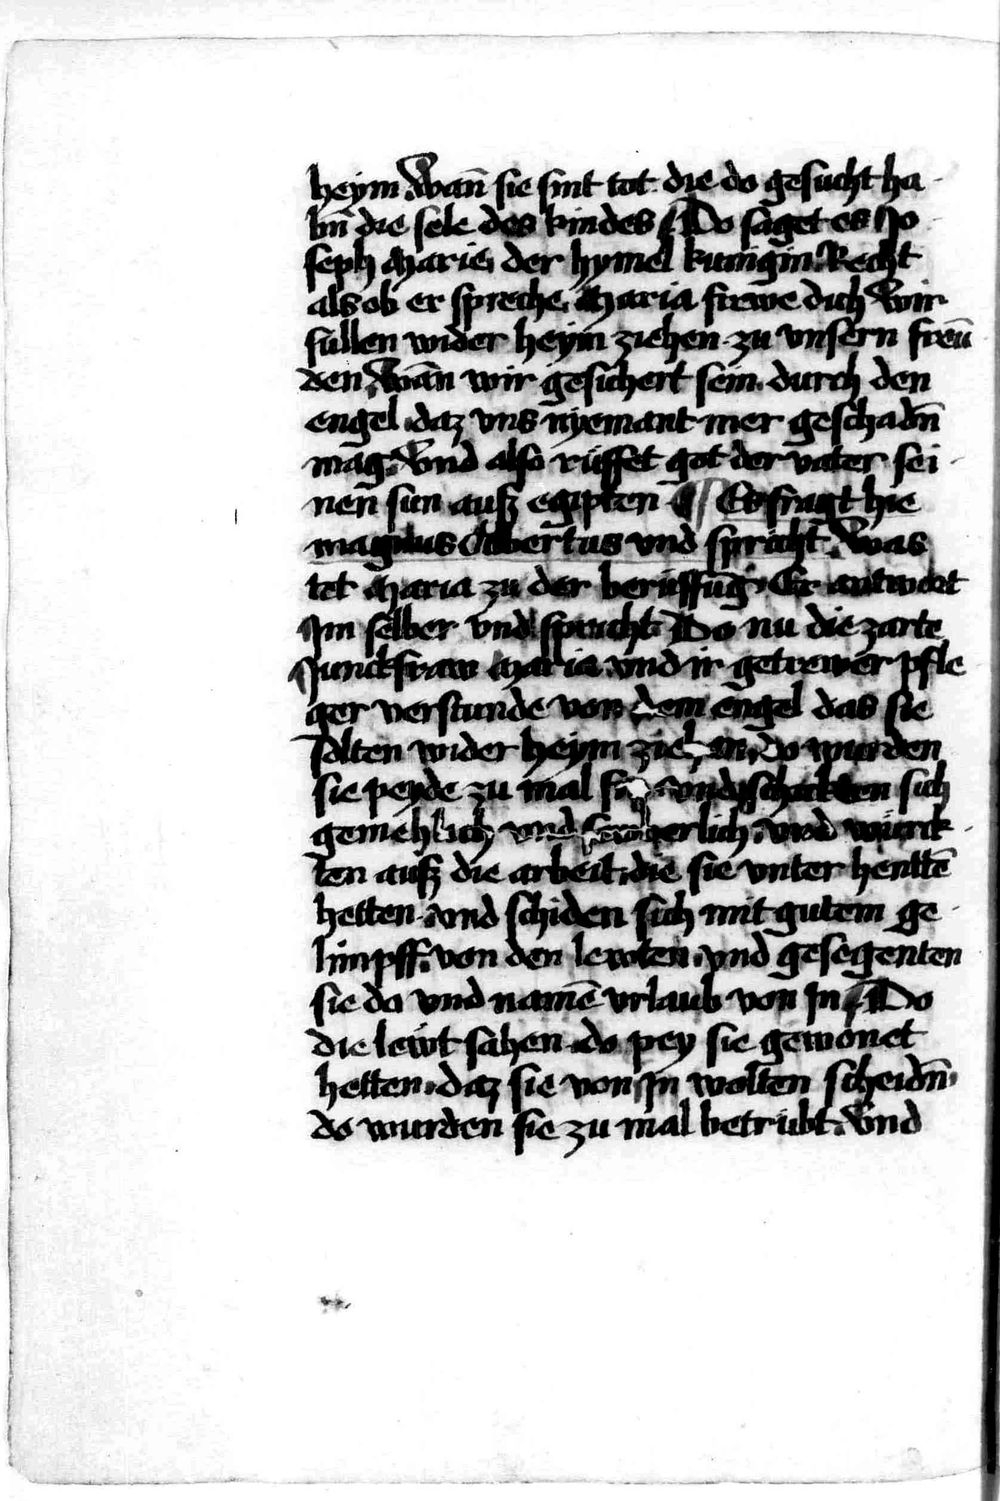 heym. Wañ sie sint tot. die do gesucht ha
bñ die sele des kindes Do saget es Jo
seph Marie, der hymel kungin. Recht
als ob er spreche. Maria frewe dich Wir
sullen wider heym ziehen. zu vnsern freũ
den. Wan wir gesichert sein. durch den
engel. daz vns nyemant mer geschadñ
mag. Vnd also rüffet got der vater sei
nen sun auß egipten ¶ Es fragt hie
magnus Albertus vnd spricht. Was
tet Maria zu der berüffũg. Er antwort
Jm selber vnd spricht. Do nu die zarte
Junckfraw Maria vnd ir getrewer pfle
ger verstunde von dem engel das sie
solten wider heym ziehen, do wurden
sie peyde zu mal fro vnd schickten sich
gemehlich vnd vnd wurck
ten auß die arbeit. die sie vnter hentẽ
hetten. vnd schiden sich mit gutem ge
limpff. von den lewten. vnd gesegenten
sie do vnd namẽ vrlaub von Jn Do
die lewt sahen. do pey sie gewonet
hetten. daz sie von Jn wolten scheidñ.
do wurden sie zu mal betrübt. Vnd